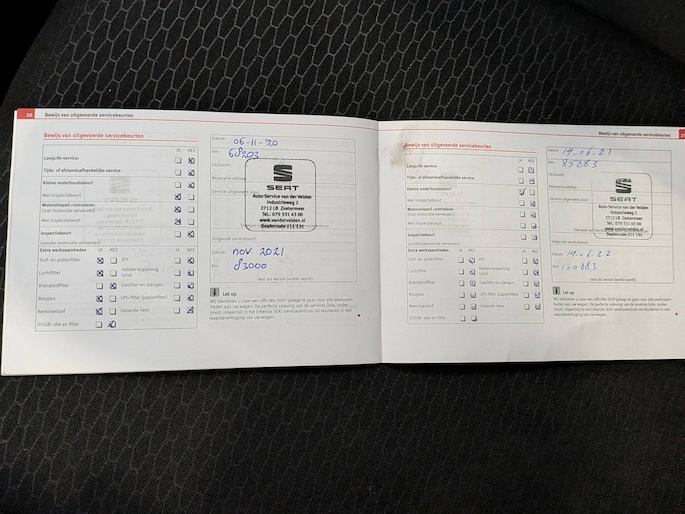 26 Bewijs van uitgevoerde servicebeurten
Bewijs van uitgevoerde servicebeurten
JA NEE
LongLife-service:
Tijds- of afstandsafhankelijke service
Kleine onderhoudsbeurt
Met inspectiebeurt
Motoroliepeil controleren
(met motorolie verversen)
Met inspectiebeurt
Inspectiebeurt
(zonder motorolie verversen)
Extra werkzaamheden JA NEE JA NEE
Stof- en pollenfilter ATF
Luchtfilter Haldex-koppeling
(olie)
Brandstoffilter Gasfilter en slangen
Bougies LPG-filter (papierfilter)
Remvloeistof Getande riem
DSG®: olie en filter
Datum: 06-11-'20
Km: 68203
Factuurnr.
Reparatie-adviseur
Service uitgevoerd door
SEAT
Auto-Service van der Velden
Industrieweg 2
2712 LB Zoetermeer
Tel.: 079 331 43 00
www.vandervelden.nl
Dealercode 211 131
Volgende servicebeurt:
Datum: nov 2021
Km: 83000
(wat als eerste bereikt wordt)
Let op
Wij adviseren u naar een officiële SEAT garage te gaan voor alle werkzaam-
heden aan uw wagen.
waardeverhoging van uw wagen.
Bewijs van uitgevoerde servicebeurten
Bewijs van uitgevoerde servicebeurten
JA NEE
LongLife-service:
Tijds- of afstandsafhankelijke service
Kleine onderhoudsbeurt
Met inspectiebeurt
Motoroliepeil controleren
(met motorolie verversen)
Met inspectiebeurt
Inspectiebeurt
(zonder motorolie verversen)
Extra werkzaamheden JA NEE JA NEE
Stof- en pollenfilter ATF
Luchtfilter Haldex-koppeling
(olie)
Brandstoffilter Gasfilter en slangen
Bougies LPG-filter (papierfilter)
Remvloeistof Getande riem
DSG®: olie en filter
Datum: 14.06.21
Km: 85883
Factuurnr.
Reparatie-adviseur
Service uitgevoerd door
SEAT
Auto-Service van der Velden
Industrieweg 2
2712 LB Zoetermeer
Tel.: 079 331 43 00
www.vandervelden.nl
Dealercode 211 131
Volgende servicebeurt:
Datum: 14.06.22
Km: 100883
(wat als eerste bereikt wordt)
Let op
Wij adviseren u naar een officiële SEAT garage te gaan voor alle werkzaam-
heden aan uw wagen.
waardeverhoging van uw wagen.